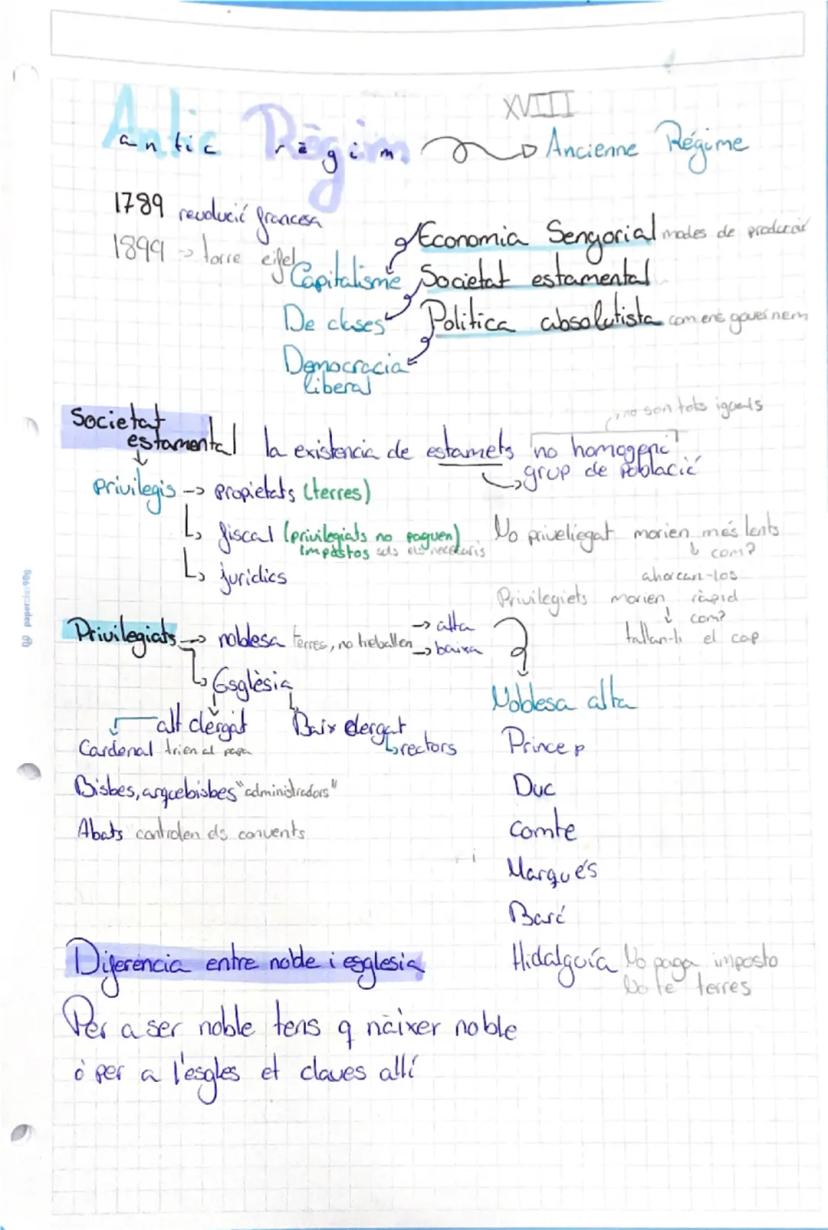 XVIII
Antic Règim
antic règim → Ancienne Régime
1789 revolució francesa
1899 → torre eifel
Economia Senyorial modes de producció
Capitalisme Societat estamental
De clases Política absolutista com ens governem
Democracia
liberal
no son tots iguals
Societat
estamental la existencia de estamets no homogeni
↳ grup de població
privilegis → propietats (terres)
↳ fiscal (privilegiats no paguen)
impostos sols els necessaris
↳ jurídics
No priveliegat morien més lents
↓ com?
ahorcan-los
Privilegiets morien ràpid
↓ com?
tallan-li el cap
Privilegiats → noblesa terres, no treballen → alta
→ baixa
↳ Esglèsia
alt clergat Baix clergat
↳ rectors
Cardenal trien al papa
Bisbes, arquebisbes "administradors"
Abats controlen els convents
Noblesa alta
Princep
Duc
Comte
Marqués
Baró
Hidalguía No paga imposto
No te terres
Diferència entre noble i esglesia
Per a ser noble tens q nàixer noble
ò per a l'esgles et claves allí
paper
90g